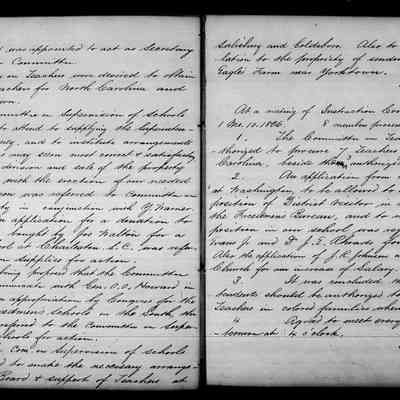 was appointed to act as Secretary
Committee
on Teachers were desired to obtain
Teachers for North Carolina and
Committee on Supervision of Schools
to attend to supplying the
and to institute arrangements
may seem most correct & satisfactory
division and sale of the property
with the sanction of our
was referred to Committee on
in conjunction with Y. Warner
application for a donation to
bought by Jos Walton for a
School at Charleston S.C. was refer
on Supplies for action.
being proposed that the Committee
communicate with Gen. O.O. Howard in
an appropriation by Congress for the
Freedmens Schools in the South the
referred to the Committee on Super
Schools for action.
Com. on Supervision of Schools
to make the necessary arrange
Board & support of Teachers at
Salisbury and Goldsboro. Also to
lation to the propriety of sendin
Eagles Farm near Yorktown.
At a meeting of Instruction Com
1 Mo. 10. 1866. 8 members presen
1. The Committee on Teach
thorized to procure 7 Teachers
Carolina, beside those authorized
2. An application from
at Washington, to be allowed to
position of District Visitor in
the Freedmens Bureau, and to
position in our school was refer
Evans Jr. and Dr J. E. Rhoads for
Also the application of J. R. Johnson
Church for an increase of Salary.
3. It was concluded th
tendents should be authorized to
Teachers in colored families when
4. Agreed to meet every
noon at 4 o'clock.